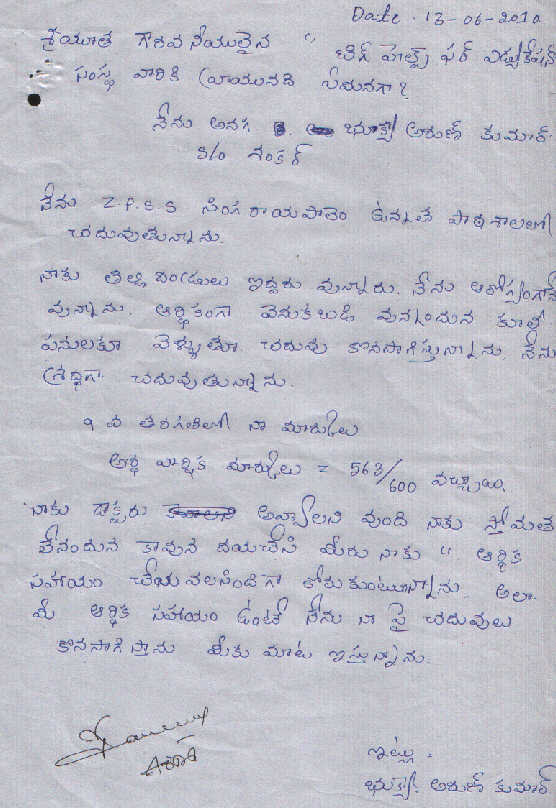 Date. 13-06-2010
శ్రీయుత గౌరవనీయులైన " బిగ్ హెల్ప్ ఫర్ ఎడ్యుకేషన్
సంస్థ వారికి వ్రాయునది ఏమనగా?
నేను అనగ భూక్యా అరుణ్ కుమార్.
S/o శంకర్
నేను Z.P.S.S సింగరాయపాలెం ఉన్నత పాఠశాలలో
చదువుతున్నాను.
నాకు తల్లి దండ్రులు ఇద్దరు వున్నారు. నేను ఆరోగ్యంగానే
వున్నాను. ఆర్థికంగా వెనుకబడి వున్నందున కూలి
పనులకూ వెళ్ళుతూ చదువు కొనసాగిస్తున్నాను. నేను
శ్రద్ధగా చదువుతున్నాను.
9 వ తరగతిలో నా మార్కులు
అర్థ వార్షిక మార్కులు = 563/600 వచ్చాయి.
నాకు డాక్టరు అవ్వాలని వుంది నాకు స్తోమత
లేనందున కావున దయచేసి మీరు నాకు " ఆర్థిక
సహాయం చేయవలసిందిగా కోరుకుంటున్నాను. అలా
మీ ఆర్థిక సహాయం ఉంటే నేను నా పై చదువులు
కొనసాగిస్తాను మీకు మాట ఇస్తున్నాను.
ఇట్లు.
భూక్యా. అరుణ్ కుమార్